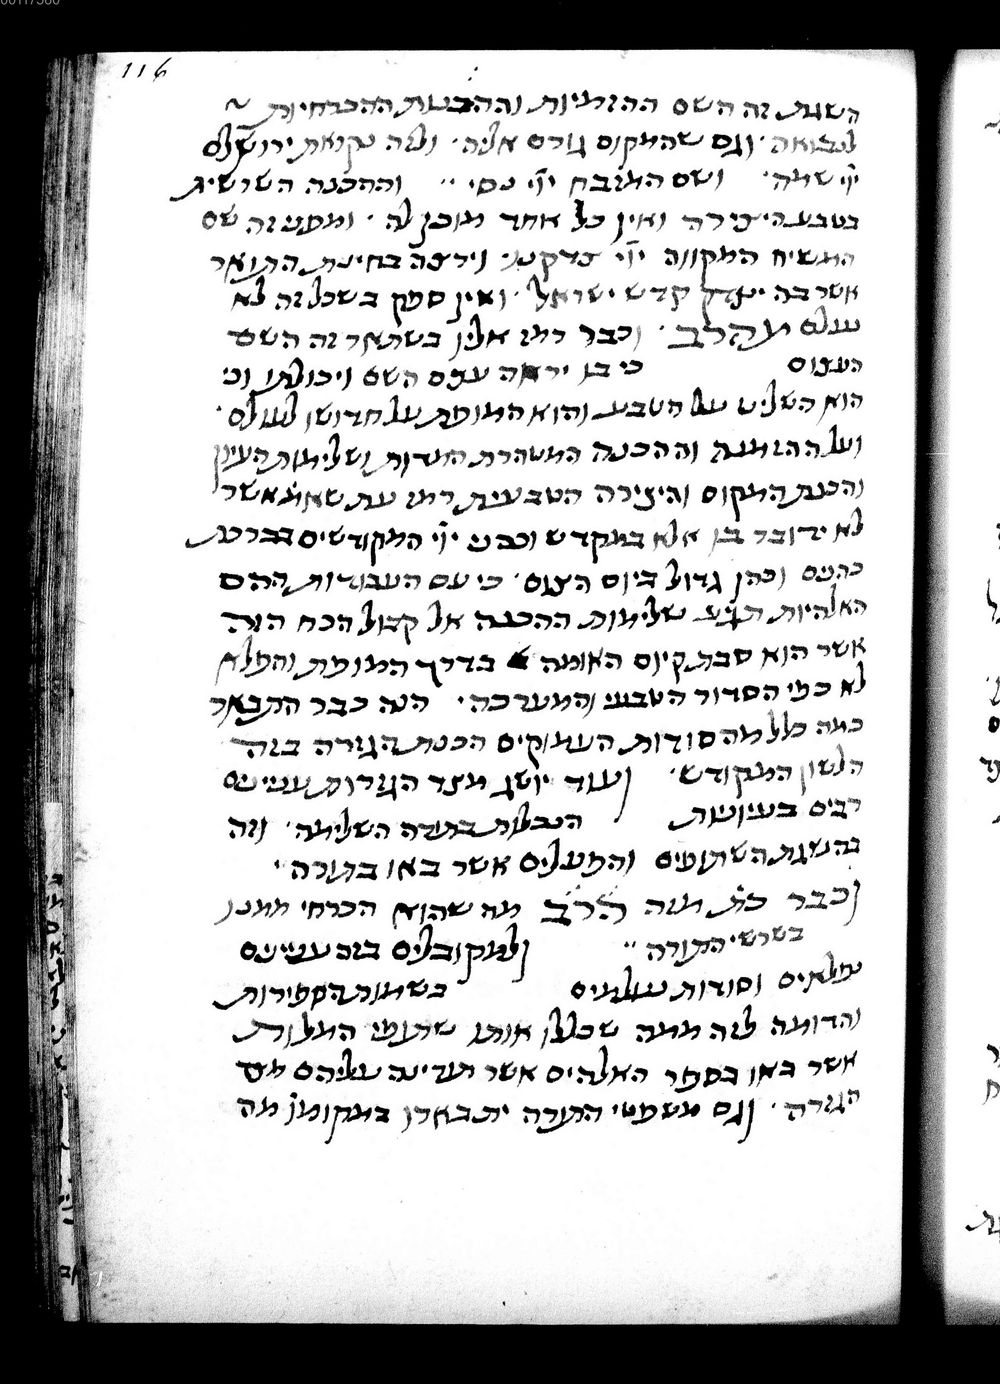 116
השגת זה השם ההזמניות וההכנות ההכרחיות
לנבואה · וגם שהמקום גורם אליה · ולזה נקראת ירושלם
ייי שמה · ושם המזבח ייי נסי ·· וההכנה השרשית
בטבע היצירה ואין כל אחד מוכן לה · ומפני זה שם
המשיח המקווה ייי צדקנו · וירצה בחינת התואר
אשר בה יצדק קדוש ישראל · ואין ספק בשכל זה לא
נעלם מהרב · וכבר רמז אליו בשתאר זה השם
העצום כי בו יראה עצם השם ויכולתו וכי
הוא השליט על הטבע והוא המופת על חדושו לעולם ·
ועל ההזמנה וההכנה המטהרת המדות ושלימות העיון
והכנת המקום והיצירה הטבעית רמז עת שאמ' אשר
לא ידובר בו אלא במקדש וכהני ייי המקודשים בברכת
כהנים וכהן גדול ביום הצום · כי עם העבודות ההם
האלהיות תגיע שלימות ההכנה אל קבול הכח הזה
אשר הוא סבת קיום האומה בדרך המופת והפלא
לא כפי הסדור הטבעי והמערכה · הנה כבר התבאר
כמה כלל מה סודות העמוקים הכנת הגזרה בזה
הלשון המקודש · ועוד יושג מצד הגזרות עניינים
רבים בעיונות הנכללות בתורה השלימה · וזה
בהשגת השתופים והנעלים אשר באו בתורה ·
וכבר כת' מזה הרב מה שהוא הכרחי ממנו
בשרשי התורה ·· ולמקובלים בזה עניינים
נפלאים וסודות נעלמים בשמות הספירות
והדומה לזה ממה שכללו אותו שתופי המלות
אשר באו בספר האלהים אשר תעדינה עליהם מצד
הגזרה · וגם משפטי התורה יתבארו במקומו מה